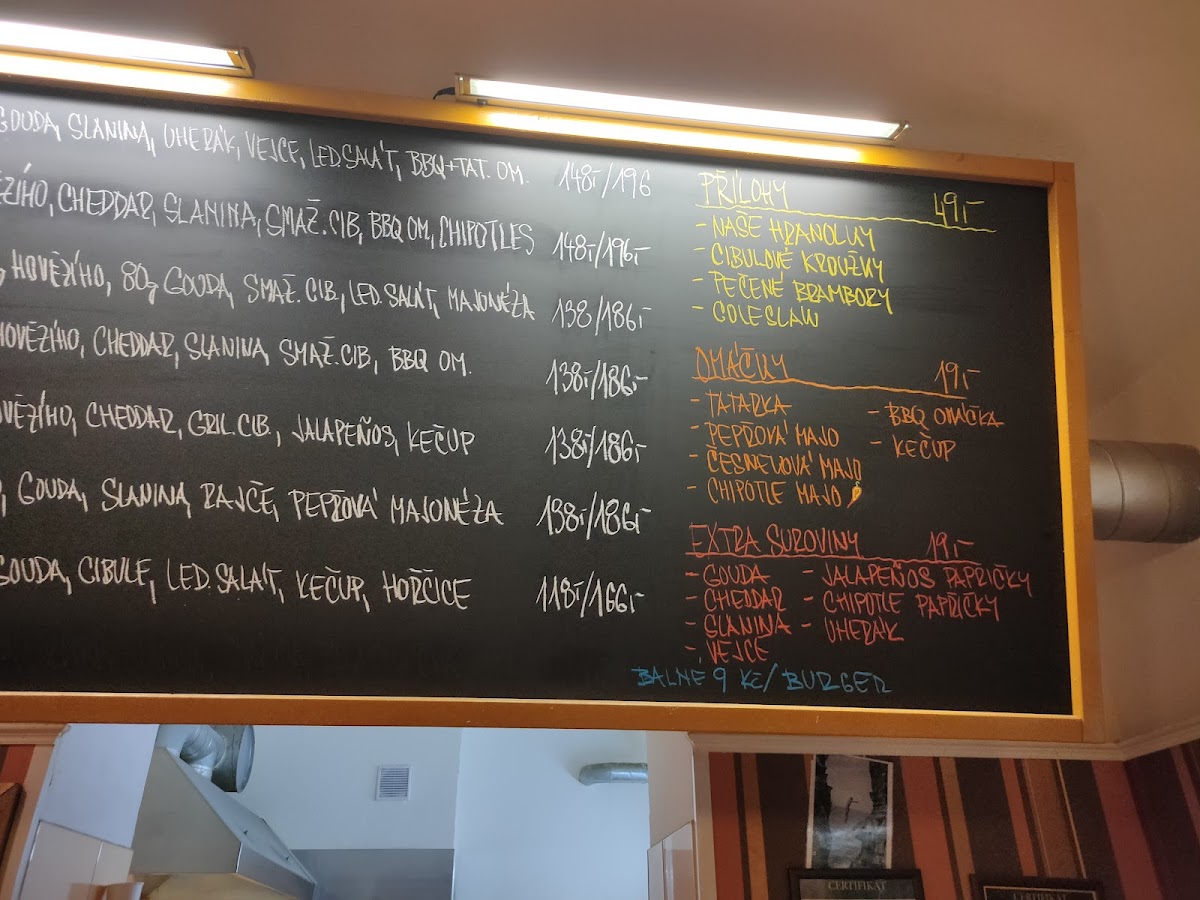 GOUDA, SLANINA, UHERÁK, VEJCE, LED.SALÁT, BBQ+TAT. OM. 148,-/196
CHEDDAR, SLANINA, SMAŽ.CIB, BBQ OM, CHIPOTLES 148,-/196,-
HOVĚZÍHO, 80g GOUDA, SMAŽ. CIB., LED. SALÁT, MAJONÉZA 138/186,-
HOVĚZÍHO, CHEDDAR, SLANINA, SMAŽ.CIB, BBQ OM. 138,-/186,-
CHEDDAR, GRIL.CIB., JALAPEÑOS, KEČUP 138,-/186,-
GOUDA, SLANINA, RAJČE, PEPŘOVÁ MAJONÉZA 138,-/186,-
GOUDA, CIBULE, LED. SALÁT, KEČUP, HOŘČICE 118,-/166,-
PŘÍLOHY 49,-
- NAŠE HRANOLKY
- CIBULOVÉ KROUŽKY
- PEČENÉ BRAMBORY
- COLESLAW
OMÁČKY 19,-
- TATARKA - BBQ OMÁČKA
- PEPŘOVÁ MAJO - KEČUP
- ČESNEKOVÁ MAJO
- CHIPOTLE MAJO
EXTRA SUROVINY 19,-
- GOUDA - JALAPEÑOS PAPRIČKY
- CHEDDAR - CHIPOTLE PAPŘIČKY
- SLANINA - UHERÁK
- VEJCE
BALNÉ 9 KČ/BURGER
CERTIFIKÁT
CERTIFIKÁT